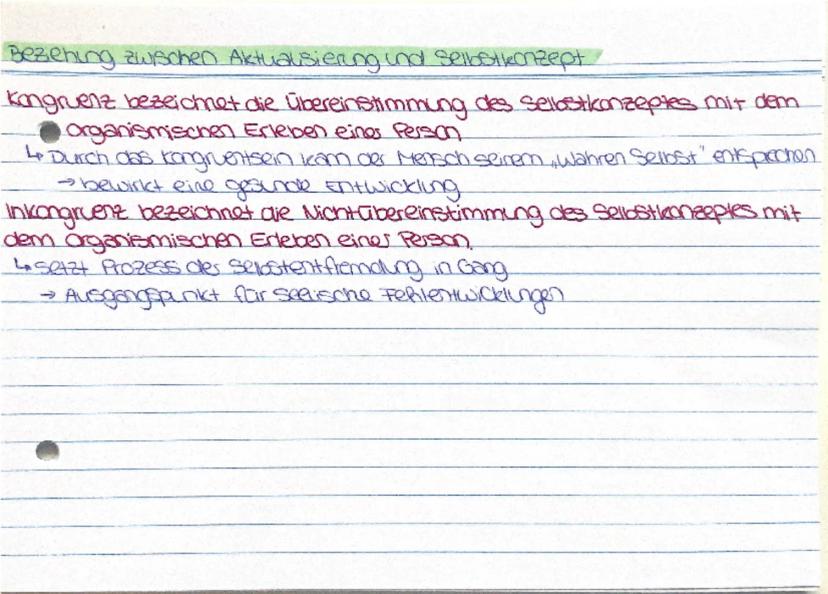 Beziehung zwischen Aktualisierung und Selbstkonzept
Kongruenz bezeichnet die Übereinstimmung des Selbstkonzeptes mit dem
Organismischen Erleben einer Person
↳ Durch das Kongruentsein kann der Mensch seinem „Wahren Selbst" entsprechen
→ bewirkt eine gesunde Entwicklung
Inkongruenz bezeichnet die Nichtübereinstimmung des Selbstkonzeptes mit
dem organismischen Erleben einer Person.
↳ Setzt Prozess der Selbstentfremdung in Gang
→ Ausgangspunkt für Seelische Fehlentwicklungen